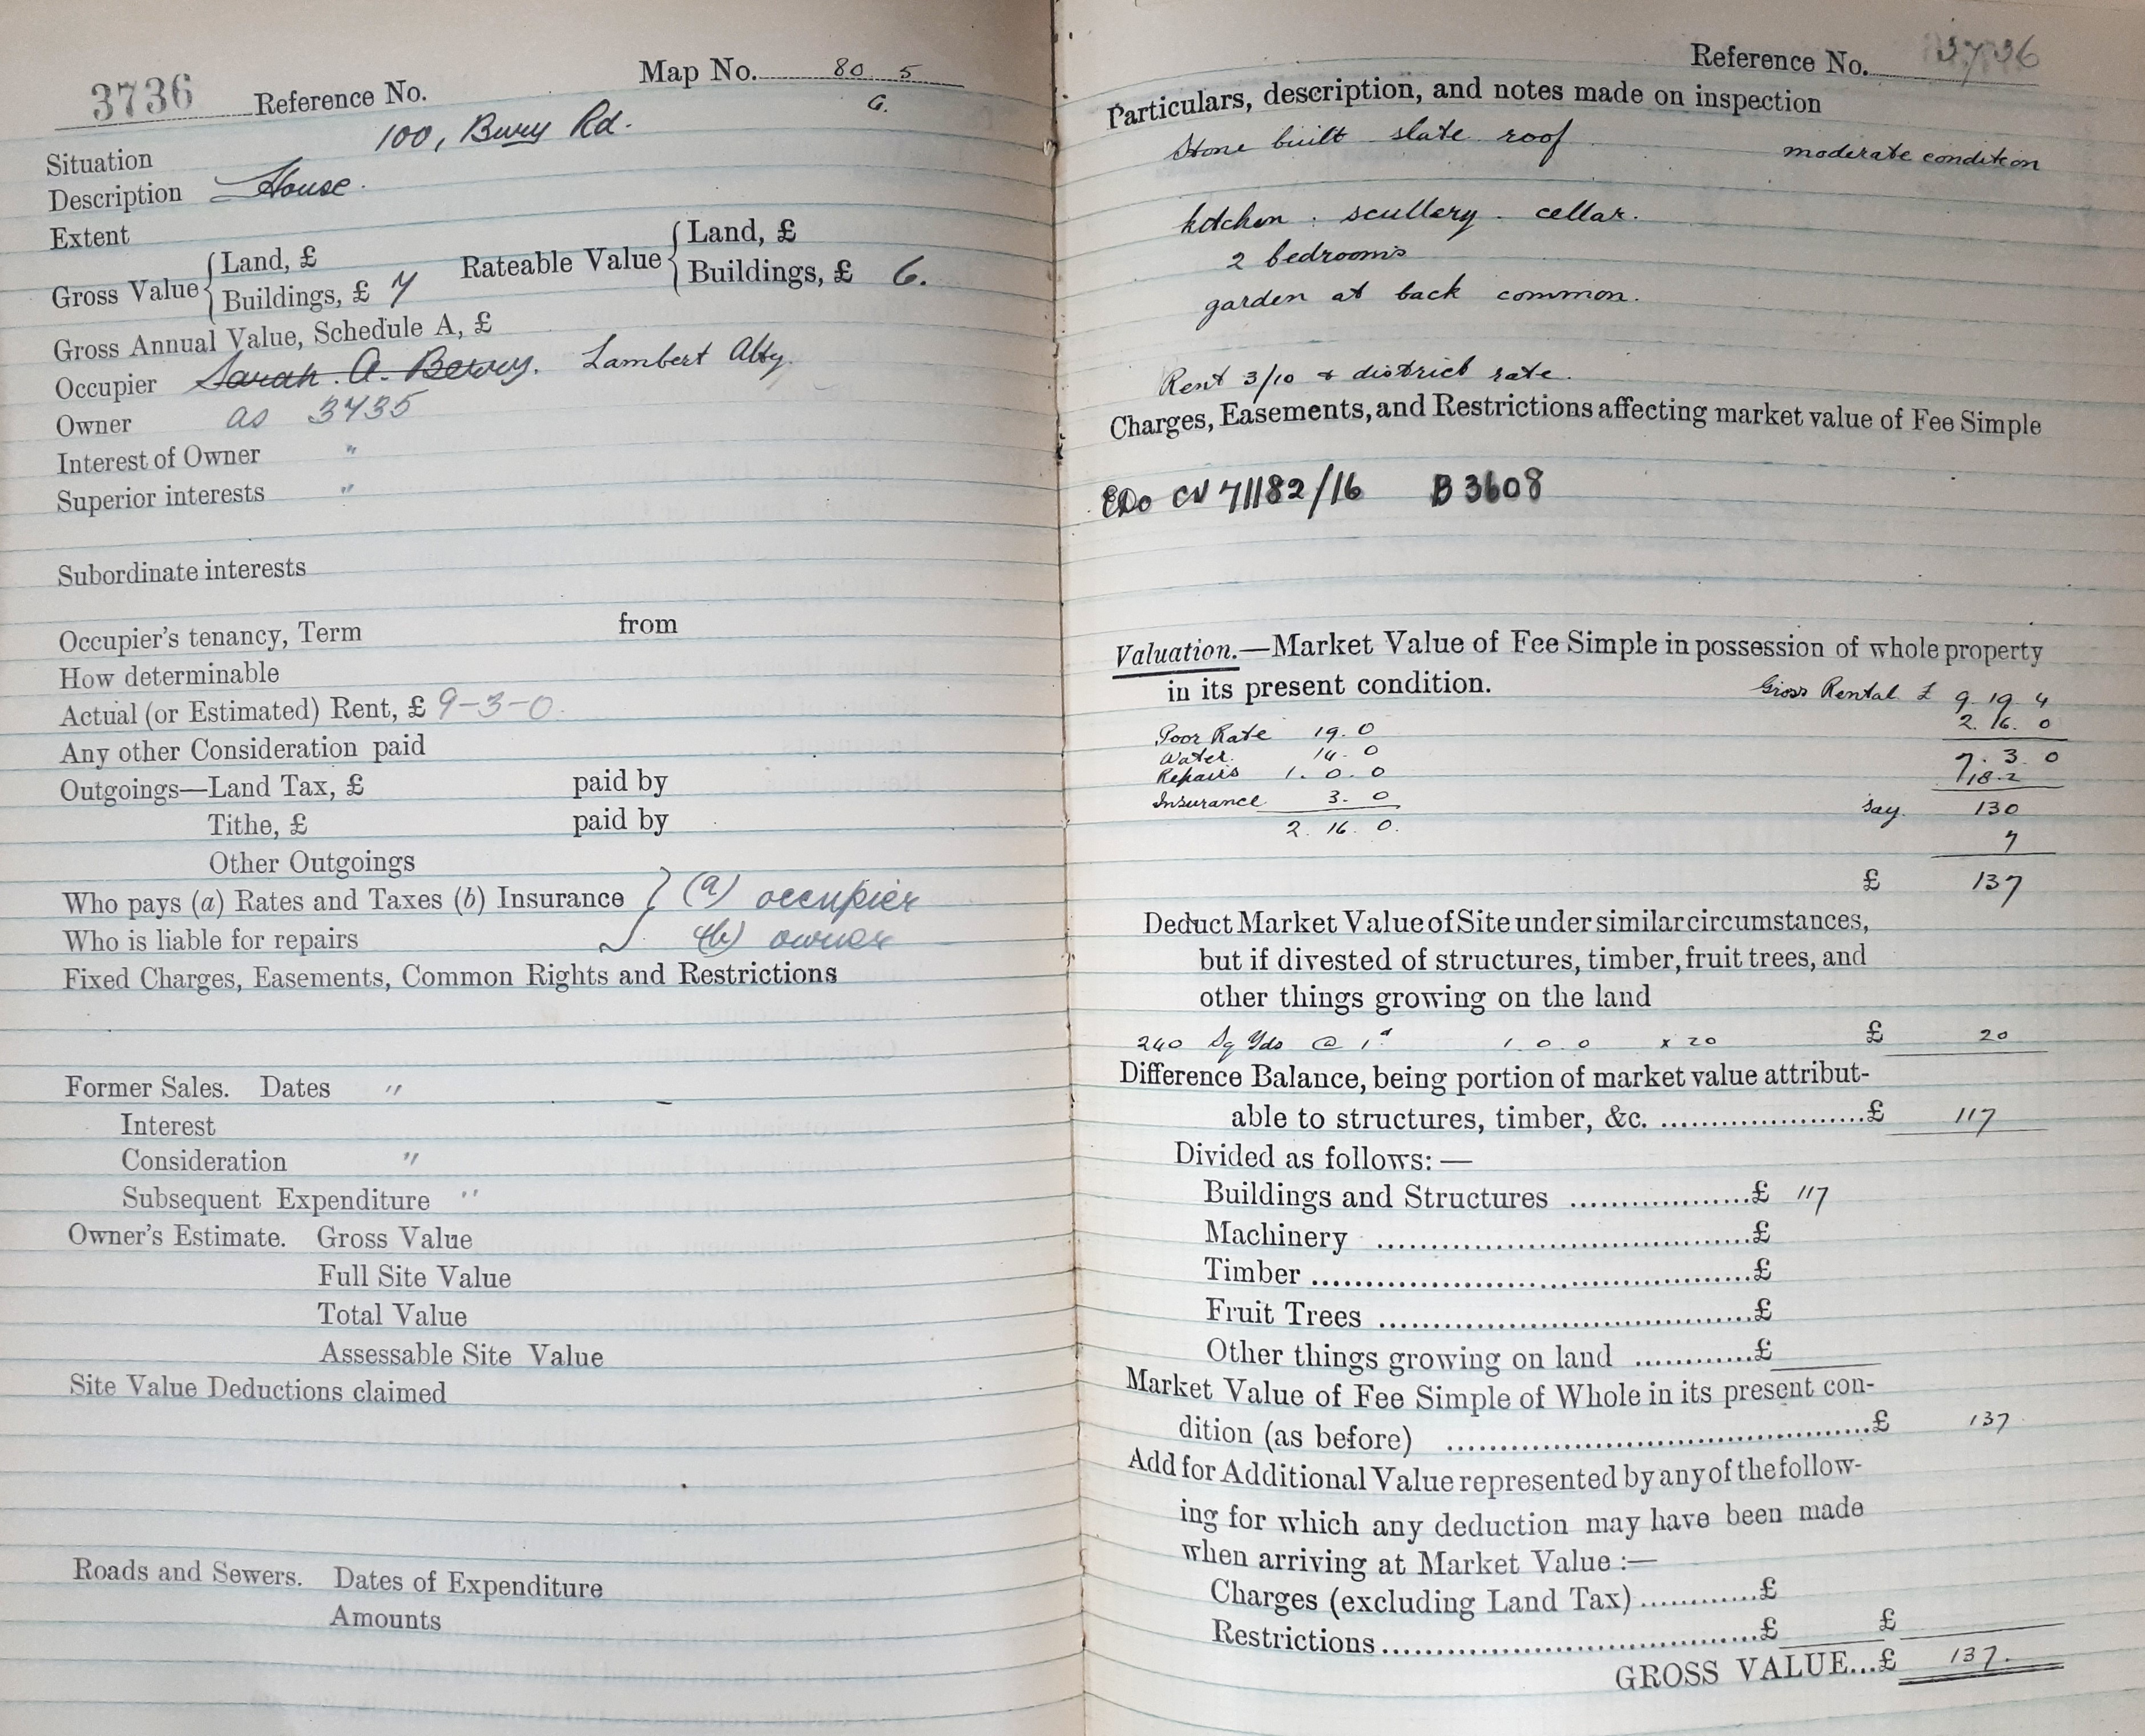 3736 Reference No. Map No. 80 5
G.
Situation 100, Bury Rd.
Description House.
Extent
Gross Value { Land, £ Rateable Value { Land, £
Buildings, £ 7 Buildings, £ 6.
Gross Annual Value, Schedule A, £
Occupier Sarah. A. Berry. Lambert Abty.
Owner as 3735
Interest of Owner "
Superior interests "
Subordinate interests
Occupier's tenancy, Term from
How determinable
Actual (or Estimated) Rent, £ 9-3-0.
Any other Consideration paid
Outgoings—Land Tax, £ paid by
Tithe, £ paid by
Other Outgoings
Who pays (a) Rates and Taxes (b) Insurance } (a) occupier
Who is liable for repairs (b) owner
Fixed Charges, Easements, Common Rights and Restrictions
Former Sales. Dates "
Interest
Consideration "
Subsequent Expenditure "
Owner's Estimate. Gross Value
Full Site Value
Total Value
Assessable Site Value
Site Value Deductions claimed
Roads and Sewers. Dates of Expenditure
Amounts
Reference No. 3736
Particulars, description, and notes made on inspection
Stone built slate roof moderate condition
kitchen . scullery . cellar.
2 bedrooms
garden at back common.
Rent 3/10 & district rate.
Charges, Easements, and Restrictions affecting market value of Fee Simple
EDo CV 71182/16 B 3608
Valuation.—Market Value of Fee Simple in possession of whole property
in its present condition. Gross Rental £ 9. 19. 4
Poor Rate 19. 0 2. 16. 0
Water. 14. 0 7. 3. 0
Repairs 1. 0. 0 18.2
Insurance 3. 0 say. 130
2. 16. 0. 7
£ 137
Deduct Market Value of Site under similar circumstances,
but if divested of structures, timber, fruit trees, and
other things growing on the land
240 Sq Yds @ 1d 1 . 0 . 0 x 20 £ 20
Difference Balance, being portion of market value attribut-
able to structures, timber, &c. ......................£ 117
Divided as follows:—
Buildings and Structures ..................£ 117
Machinery ......................................£
Timber .............................................£
Fruit Trees ......................................£
Other things growing on land ............£
Market Value of Fee Simple of Whole in its present con-
dition (as before) ............................................£ 137
Add for Additional Value represented by any of the follow-
ing for which any deduction may have been made
when arriving at Market Value :—
Charges (excluding Land Tax) ............£
Restrictions ......................................£ £
GROSS VALUE...£ 137.